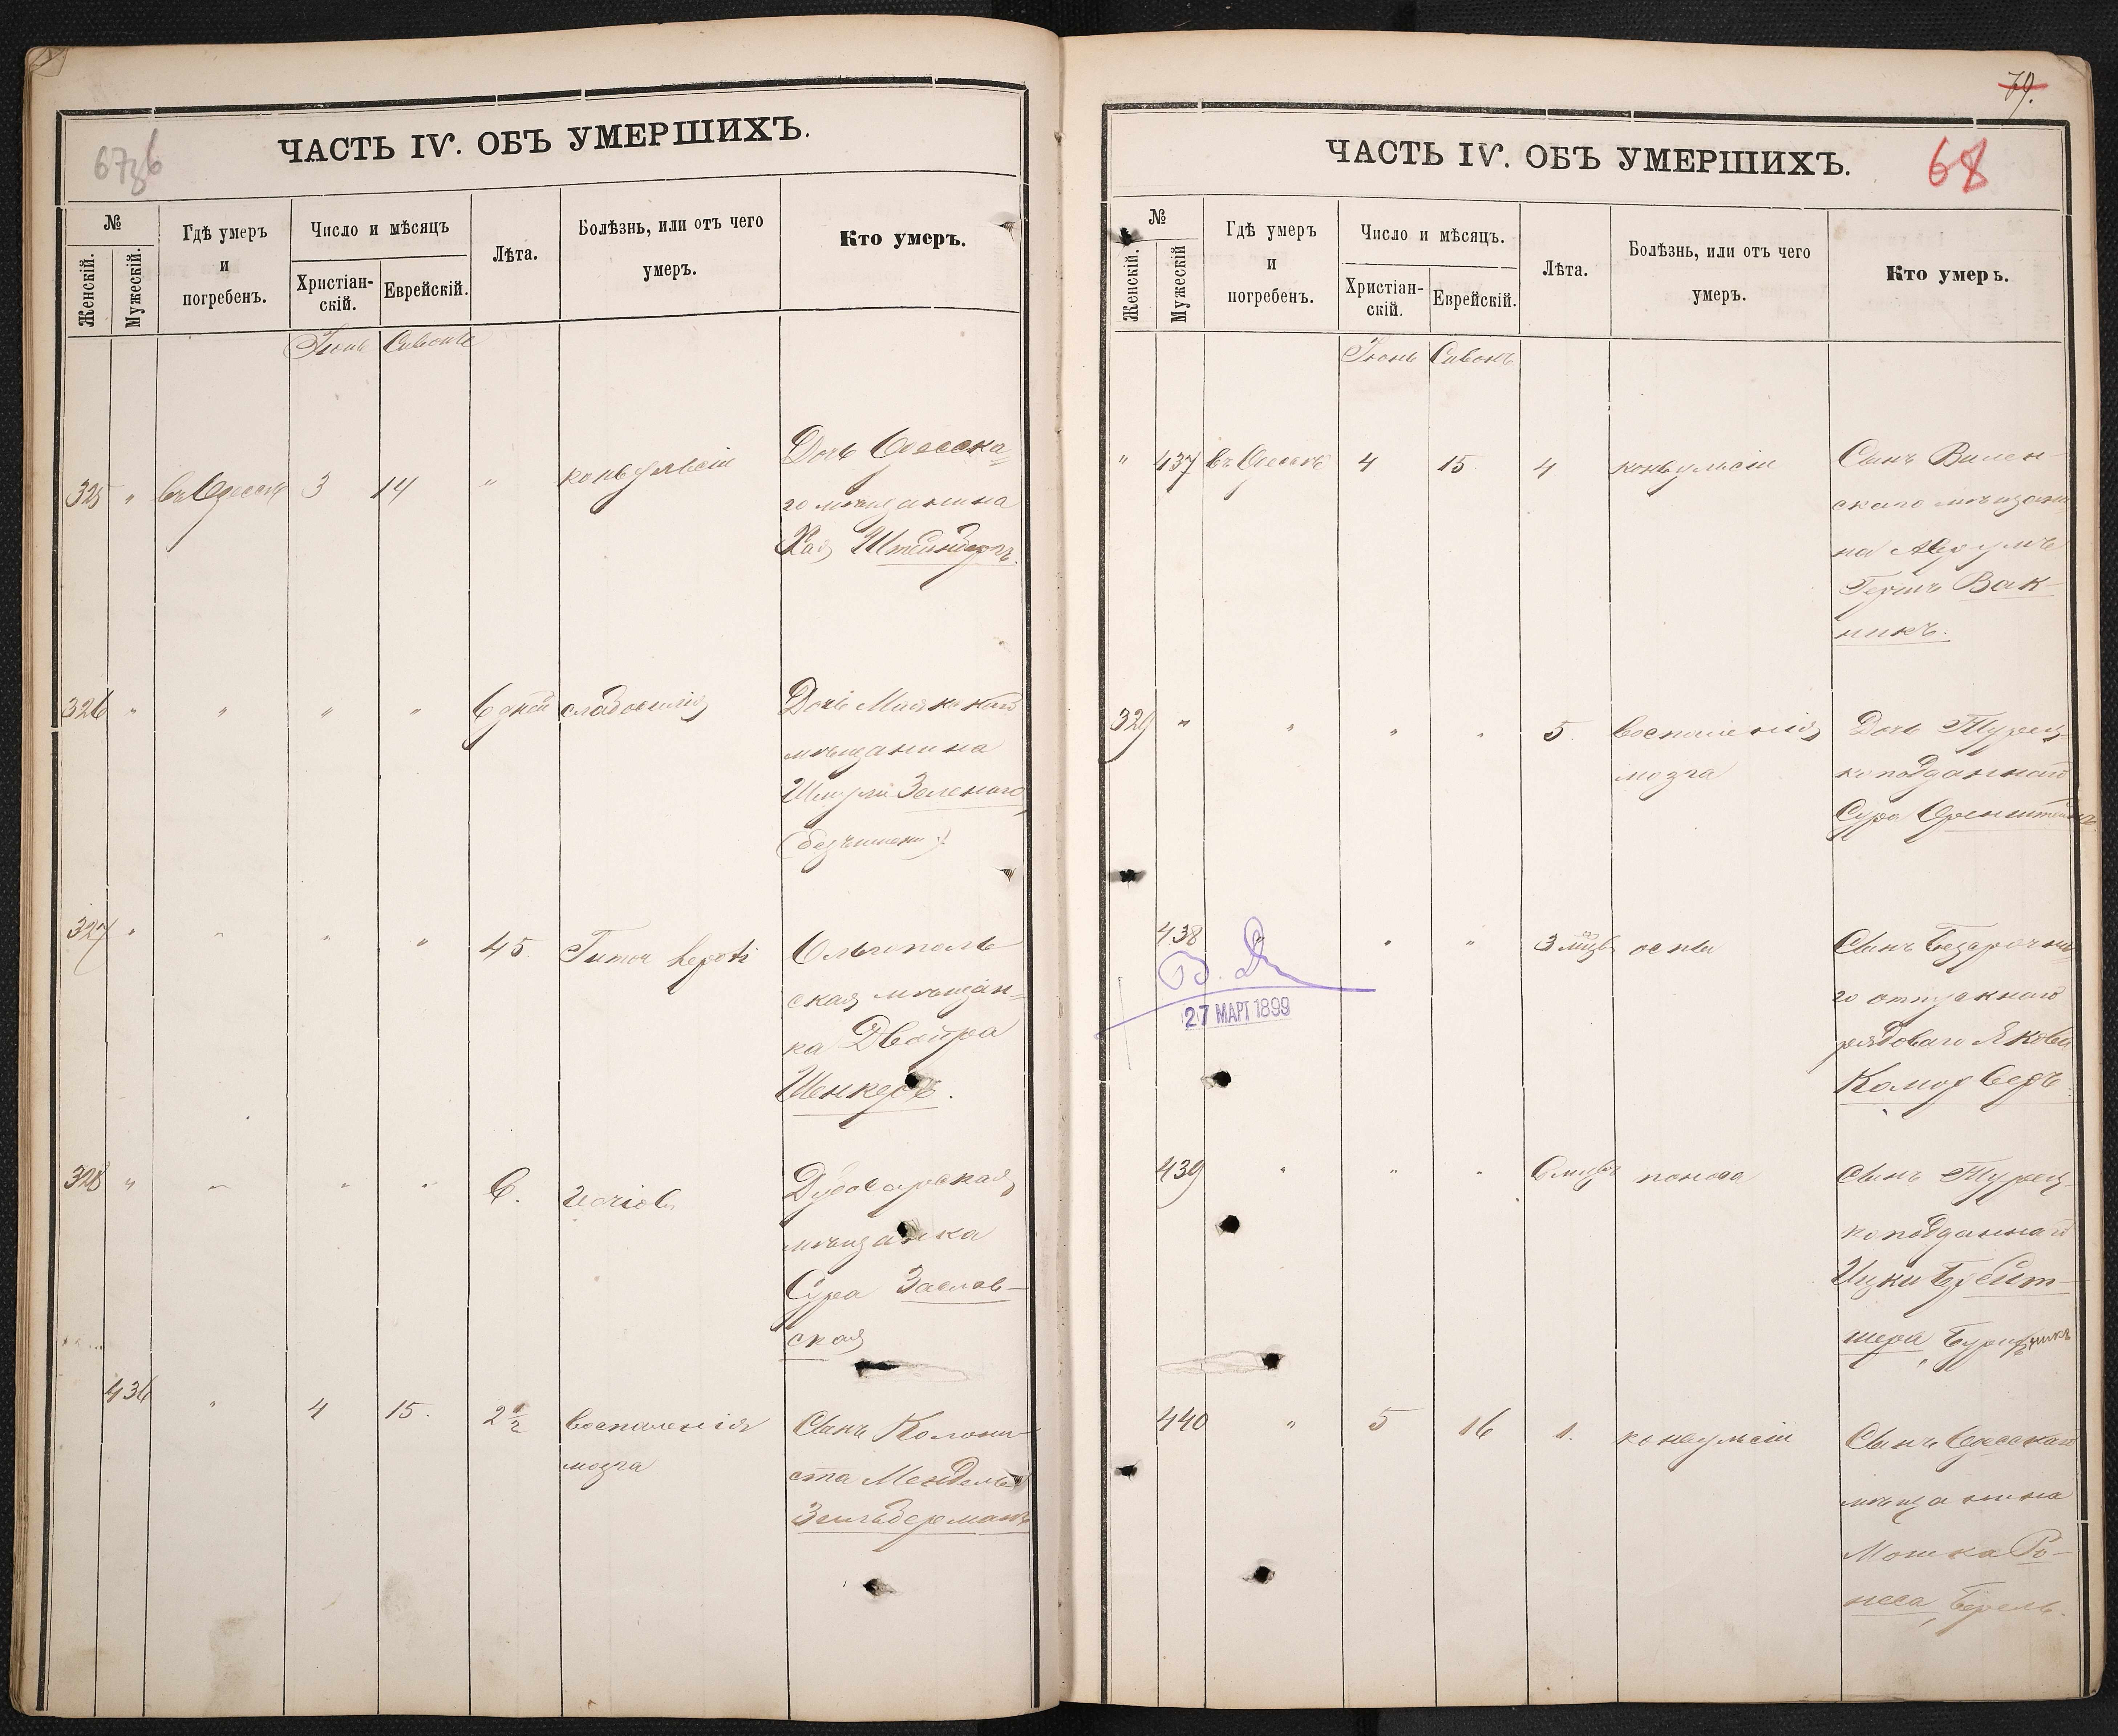 79.
67зб
ЧАСТЬ IV. ОБЪ УМЕРШИХЪ.
№
Женскій.
Мужескій.
Гдѣ умеръ
и
погребенъ.
Число и мѣсяцъ
Христіан-
скій.
Еврейскій.
Лѣта.
Болѣзнь, или отъ чего
умеръ.
Кто умеръ.
Іюнь Сивонъ
325 " въ Одессѣ 3 14 " конвульсіи Дочь Одесска
го мѣщанина
Хая Штейнбергъ.
326 " " " " 6 дней слабосилія Дочь Маякскаго
мѣщанина
Шмуля Зеленаго
(безъимени)
327 " " " " 45 Tumor hepati Ольгополь
ская мѣщан=
ка Двойра
Шенкеръ.
328 " " " " 6.
Дубосарская
мѣщанка
Сура Заслав-
ская
436 " 4 15. 2½ воспаленія мозга Сынъ Колони-
ста Мендель
Зильберманъ
68
ЧАСТЬ IV. ОБЪ УМЕРШИХЪ.
№
Женскій.
Мужескій
Гдѣ умеръ
и
погребенъ.
Число и мѣсяцъ.
Христіан-
скій.
Еврейскій.
Лѣта.
Болѣзнь, или отъ чего
умеръ.
Кто умеръ.
Іюнь Сивонъ
" 437 въ Одессѣ 4 15. 4 конвульсіи Сынъ Вилен-
скаго мѣщани
на
Гершъ Вак-
никъ.
329 " " " " 5. воспаленія мозга Дочь Турец-
коподданнаго
Сура Оренштейнъ
438 " " 3 мѣсц. оспы Сынъ
го отпускнаго
рядоваго Якова
27 МАРТ 1899
439 " " " 6 мѣсц. поноса Сынъ Турец-
коподданнаго
Ицки Брейт-
мера,
440 " 5 16 1. конвульсіи Сынъ Одесскаго
мѣщанина
Мошка Ро-
неса, Берель.